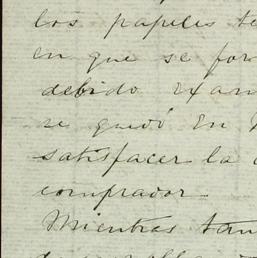 los papeles
en que se for
debido exam
se quedó en
satisfacer la
comprador
Mientras tan